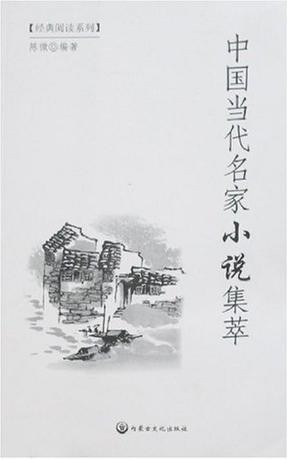 【经典阅读系列】
陈微◎编著
中国当代名家小说集萃
内蒙古文化出版社